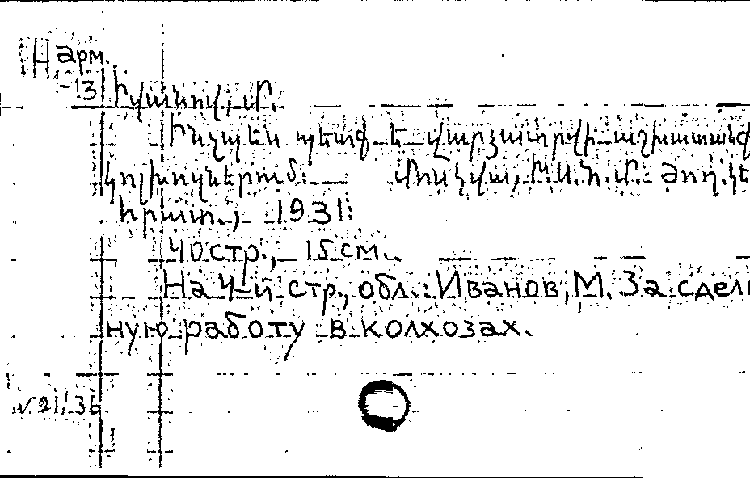 Н арм.
-13
Իվանով, Մ.
Ինչպես պետք է վարձատրվի աշխատանքը
կոլխոզներում: Մոսկվա, Ժող. կենտ
հրատ., 1931:
40 стр., 15 см.
На 4-й стр., обл.: Иванов, М. За сдель
ную работу в колхозах.